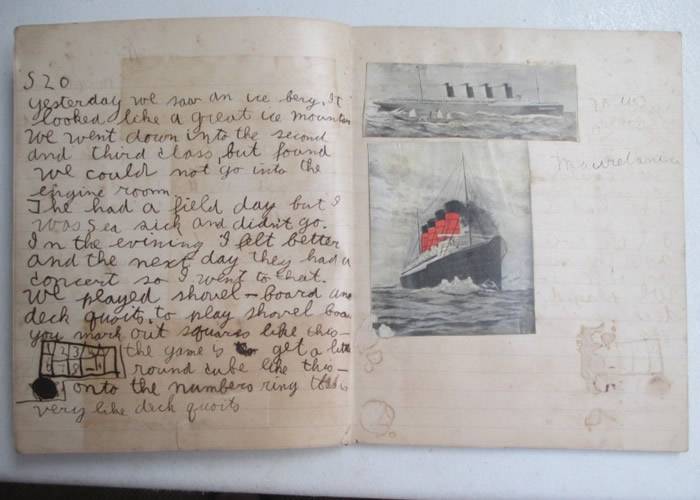 S 20
yesterday we saw an ice berg. It
looked like a great ice mountain
We went down into the second
and third class, but found
we could not go into the
engine room
The had a field day but I
was sea sick and didn't go.
In the evening I felt better
and the next day they had a
concert so I went to that.
We played shovel-board and
deck quoits. to play shovel boa
you mark out squares like this—
1 2 3 the game is to get a little
7 8 -11 round cube like this—
onto the numbers ring
very like deck quoits
Mauretania